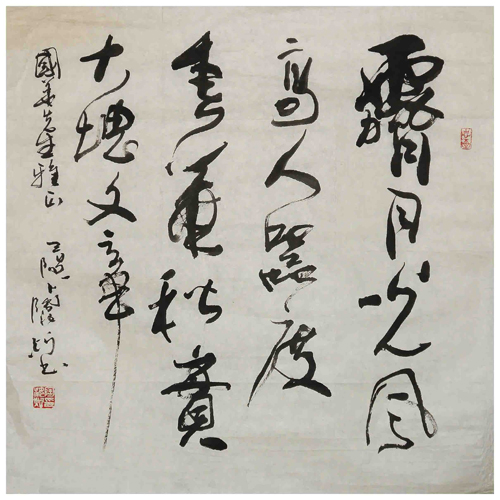 霽月光風
高人器度
春華秋實
大塊文章
國華先生雅正